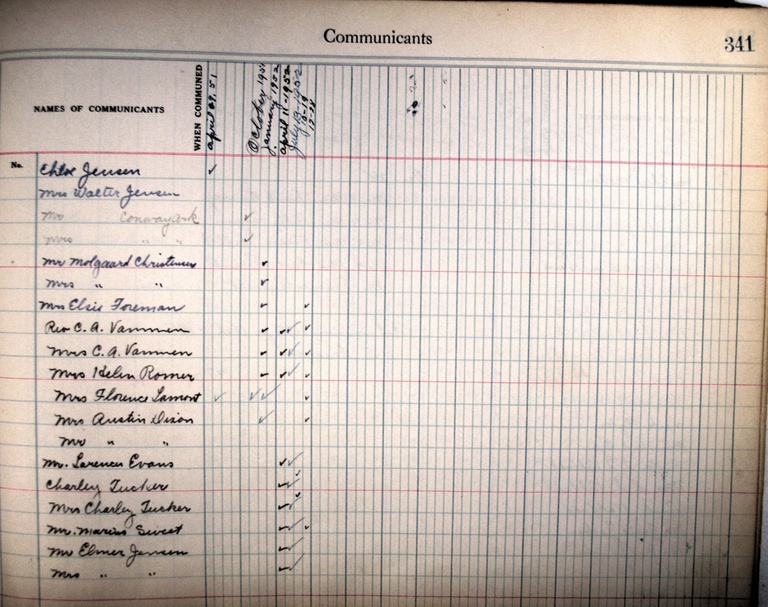 Communicants
341
NAMES OF COMMUNICANTS
WHEN COMMUNED
april 29, 51
October 1951
january 1952
april 11 - 1952
July 13 1952
No.
Chloe Jensen
Mrs Walter Jensen
Mr Conway
Mrs " "
Mr Molgaard Christensen
Mrs " "
Mrs Elsie Foreman
Rev C. A. Vammen
Mrs C. A. Vammen
Mrs Helen Romer
Mrs Florence Lamont
Mrs Austin Dixon
Mr " "
Mr. Larence Evans
Charley Tucker
Mrs Charley Tucker
Mr. Marius Sweet
Mr Elmer Jensen
Mrs " "